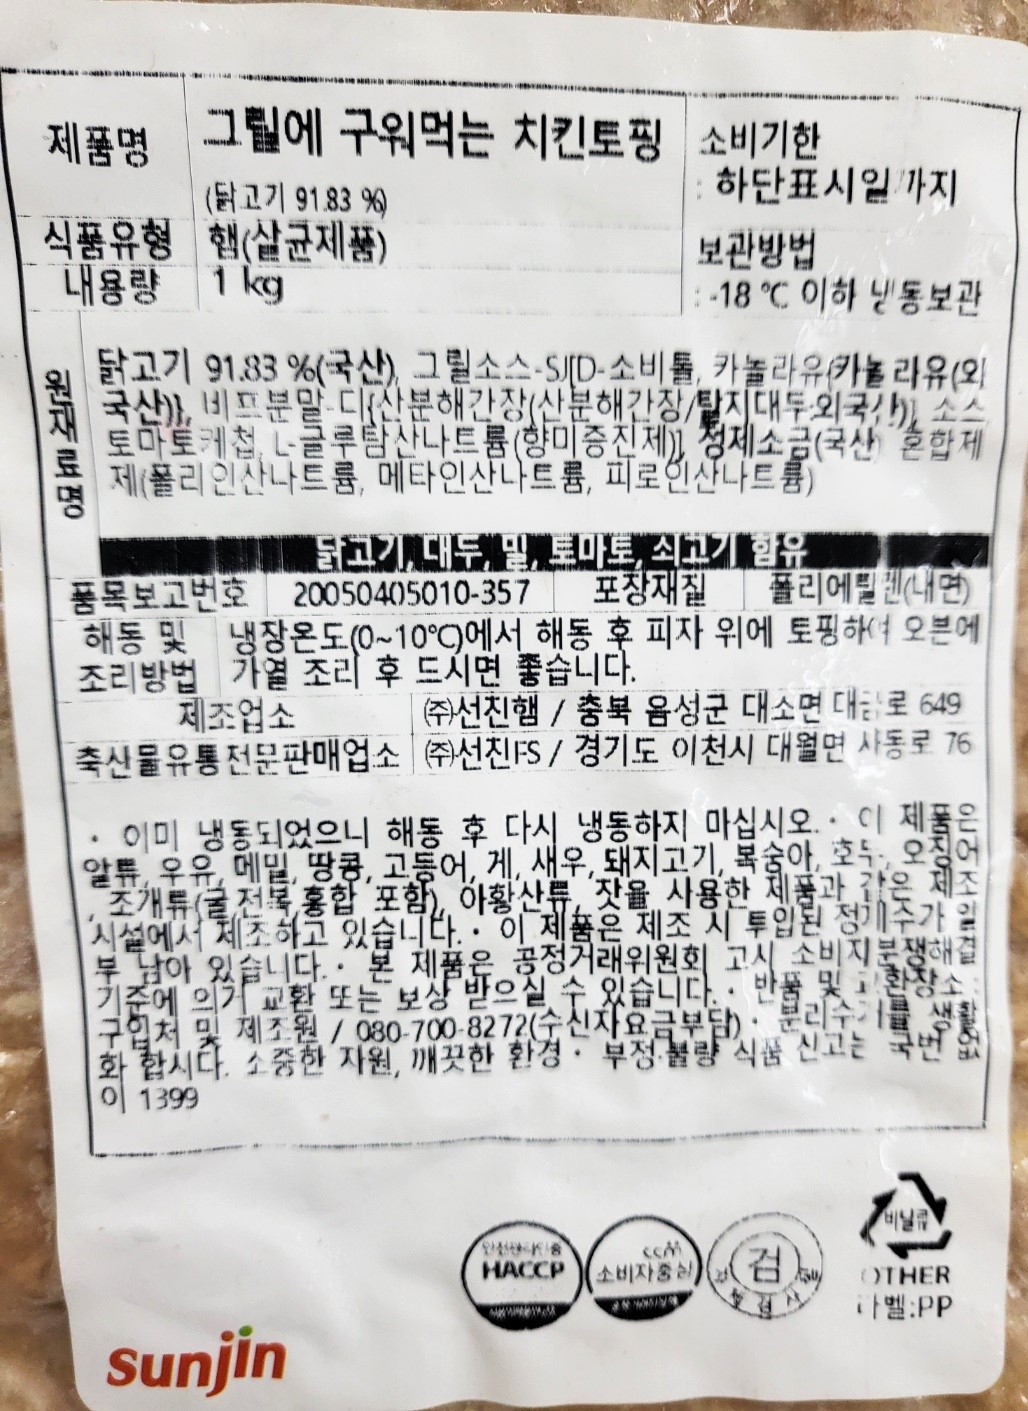 제품명
그릴에 구워먹는 치킨토핑
(닭고기 91.83 %)
소비기한
: 하단표시일까지
식품유형
햄(살균제품)
보관방법
: -18 ℃ 이하 냉동보관
내용량
1 kg
원재료명
닭고기 91.83 %(국산), 그릴소스-SJ[D-소비톨, 카놀라유{카놀라유(외
국산)}, 비프분말-디{산분해간장(산분해간장/탈지대두:외국산)}, 소스
토마토케첩, L-글루탐산나트륨(향미증진제)], 정제소금(국산) 혼합제
제(폴리인산나트륨, 메타인산나트륨, 피로인산나트륨)
닭고기, 대두, 밀, 토마토, 쇠고기 함유
품목보고번호
20050405010-357
포장재질
폴리에틸렌(내면)
해동 및
조리방법
냉장온도(0~10℃)에서 해동 후 피자 위에 토핑하여 오븐에
가열 조리 후 드시면 좋습니다.
제조업소
㈜선진햄 / 충북 음성군 대소면 대금로 649
축산물유통전문판매업소
㈜선진FS / 경기도 이천시 대월면 사동로 76
· 이미 냉동되었으니 해동 후 다시 냉동하지 마십시오. · 이 제품은
알류, 우유, 메밀, 땅콩, 고등어, 게, 새우, 돼지고기, 복숭아, 호두, 오징어
, 조개류(굴,전복,홍합 포함), 아황산류, 잣을 사용한 제품과 같은 제조
시설에서 제조하고 있습니다. · 이 제품은 제조 시 투입된 정제수가 일
부 남아 있습니다. · 본 제품은 공정거래위원회 고시 소비자분쟁해결
기준에 의거 교환 또는 보상 받으실 수 있습니다. · 반품 및 교환장소 :
구입처 및 제조원 / 080-700-8272(수신자요금부담) · 분리수거를 생활
화 합시다. 소중한 자원, 깨끗한 환경 · 부정·불량 식품 신고는 국번 없
이 1399
HACCP
CCM
소비자중심
검
비닐류
OTHER
라벨:PP
sunjin